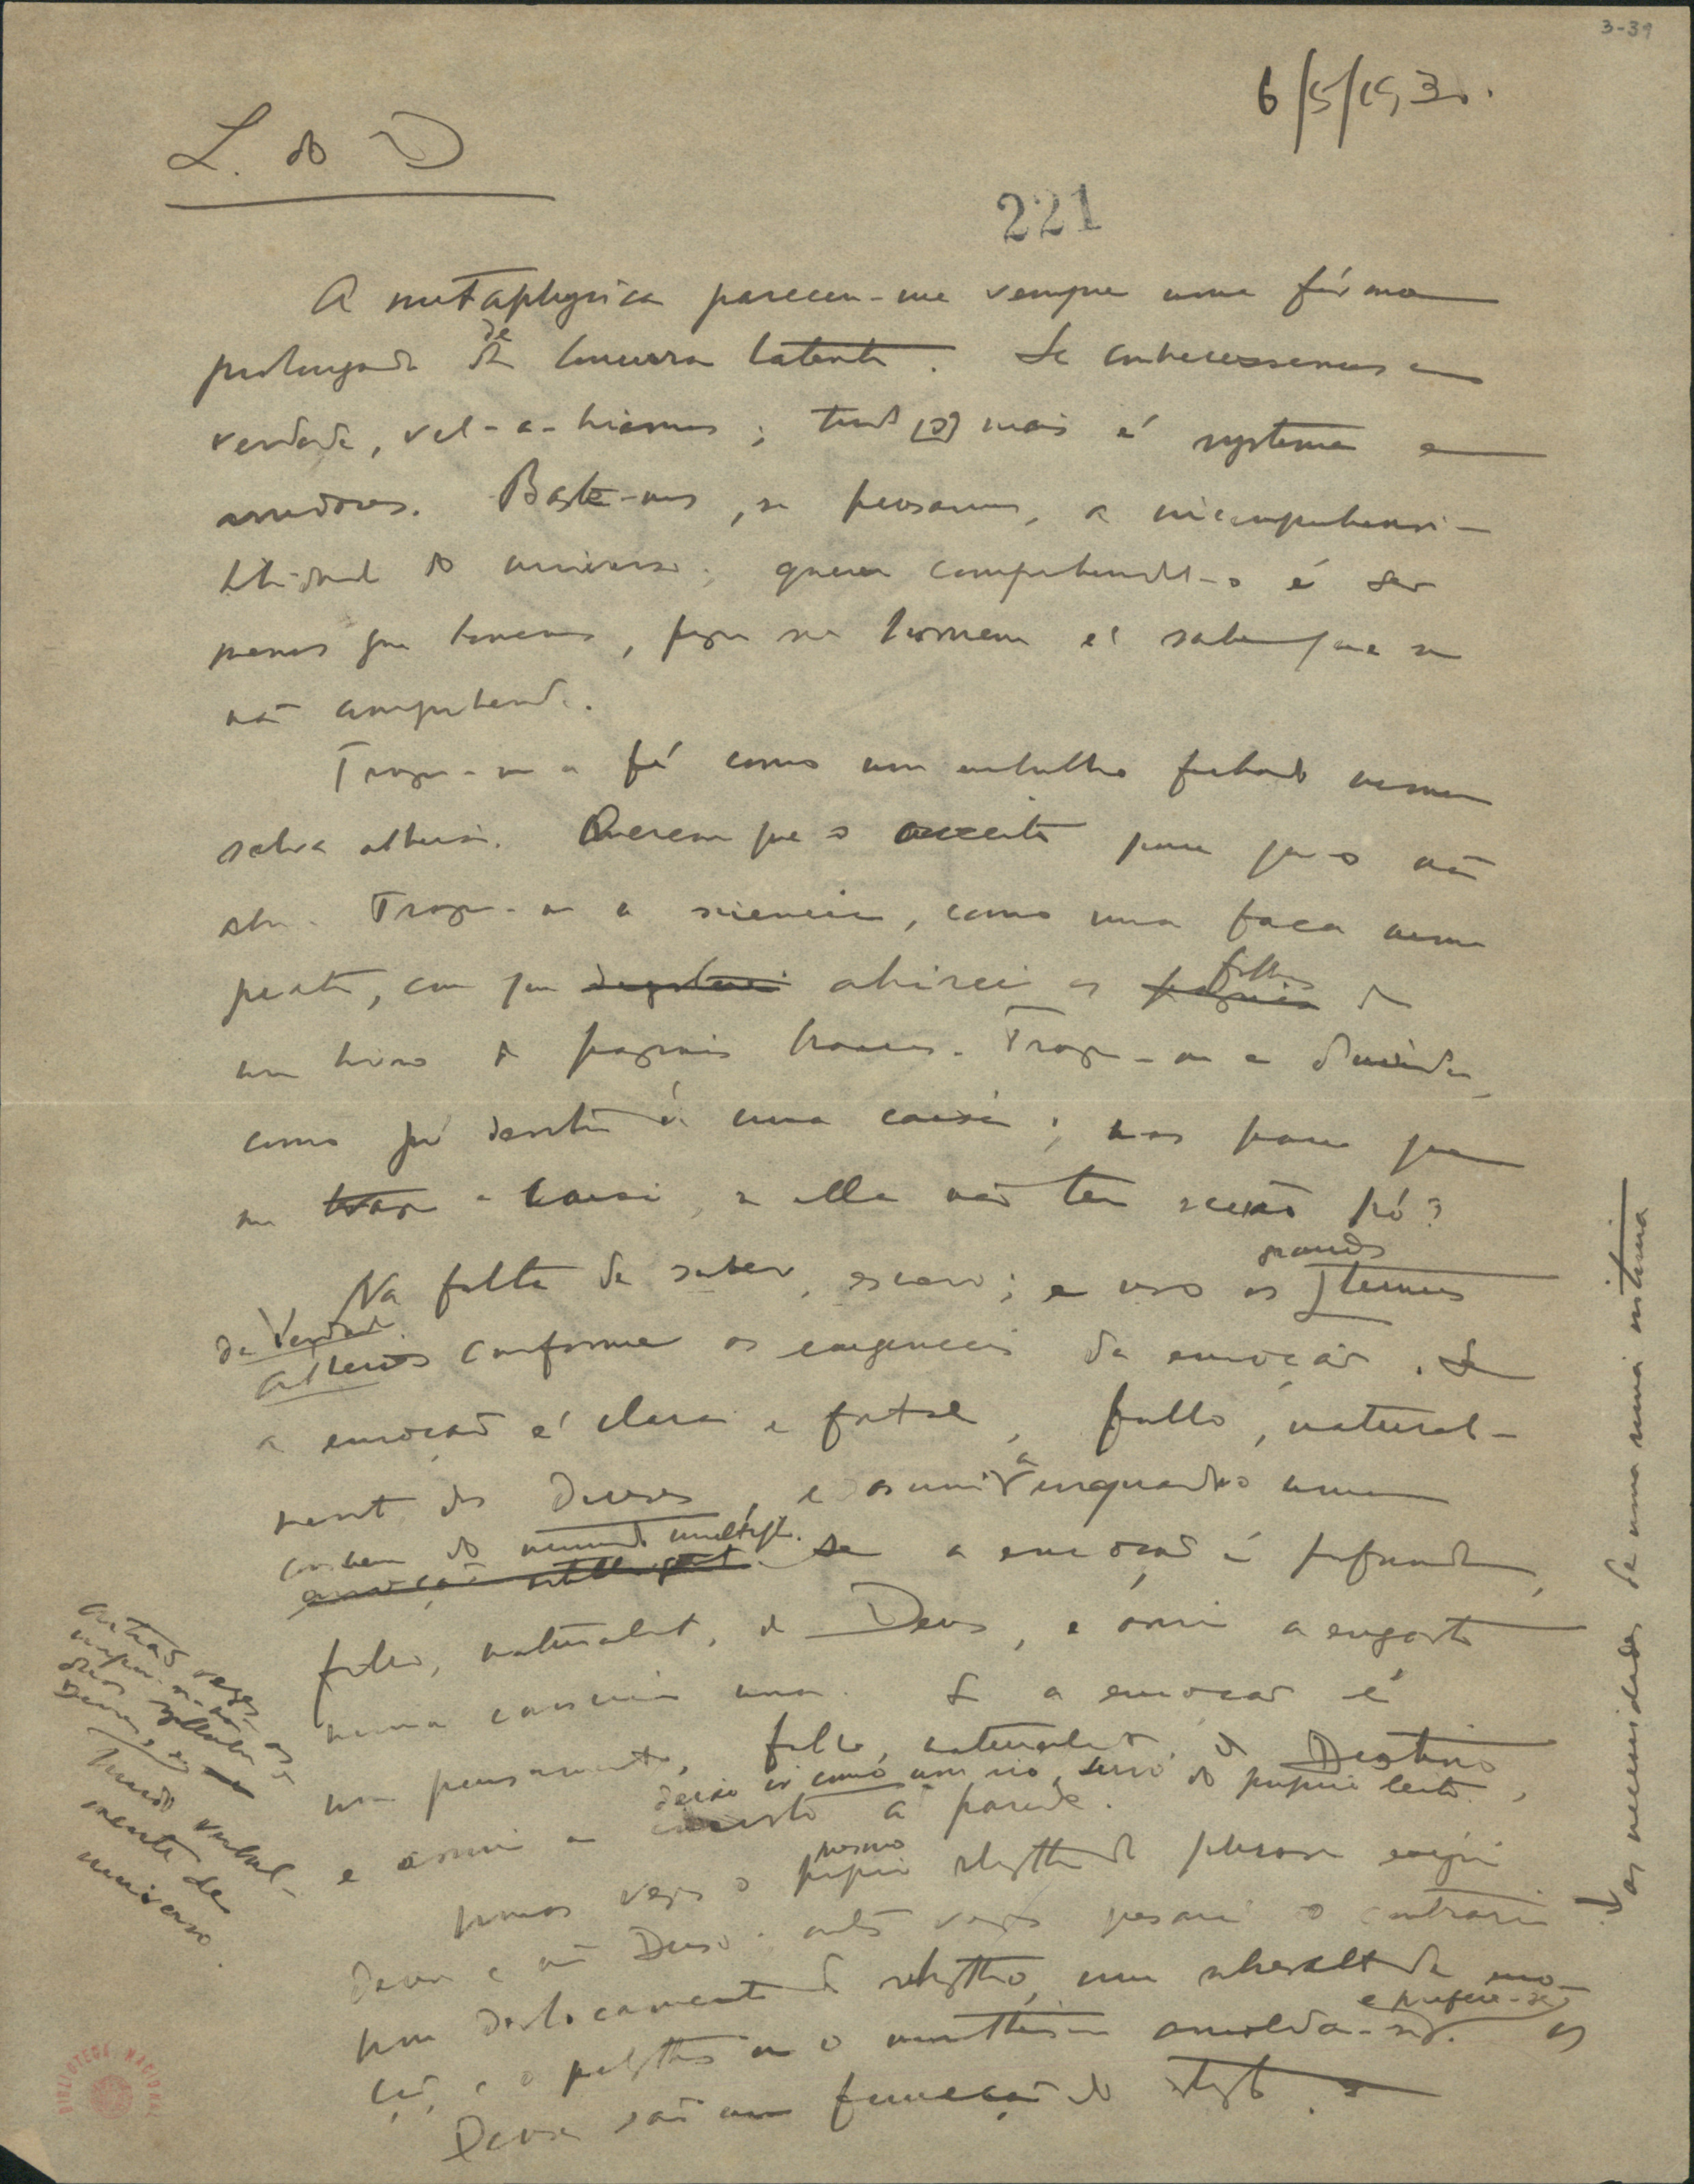 3-39
6/5/1930.
L. do D
221
A metaphysica pareceu-me sempre uma fórma
prolongada da de loucura latente. Se conhecessemos a
verdade, vel-a-hiamos; tudo [o] mais é systema e
arredores. Basta-nos, se pensarmos, a incomprehensi-
bilidade do universo; querer comprehendel-o é ser
menos que homens, porque ser homem é saber que se
não comprehende.
Trazem-me a fé como um embrulho fechado numa
salva alheia. Querem que o acceite para que o não
abra. Trazem-me a sciencia, como uma faca num
prato, com que abrirei as paginas folhas de
um livro de paginas brancas. Trazem-me a duvida,
como pó dentro de uma caixa; mas para que
me trazem a caixa, se ella não tem senão pó?
Na falta de saber, escrevo; e uso os grandes termos
da Verdade alheios conforme as exigencias da emoção. Se
a emoção é clara e fatal, fallo, natural-
mente, dos Deuses, e assim a enquadro numa
consciencia do mundo multiplo. Se a emoção é profunda,
fallo, naturalmente, de Deus, e assim a engasto
numa consciencia una. Se a emoção é
um pensamento, fallo, naturalmente, do Destino,
e assim a encosto à parede.
deixo ir como um rio, servo do proprio leito.
Humas vezes o proprio mesmo rhythmo da phrase exigirá
Deuses e não Deus; outras vezes
outras vezes, impor-se-ão as duas syllabas Deuses, e
mudo verbal-
mente de
universo.
pesarão, ao contrario,
as necessidades de uma rima intima
um deslocamento do rhythmo, um sobresalto da emo-
ção, e o polytheismo ou o monotheismo amolda-se. e prefere-se. Os
Deuses são uma funcção do estylo.
BIBLIOTECA NACIONAL